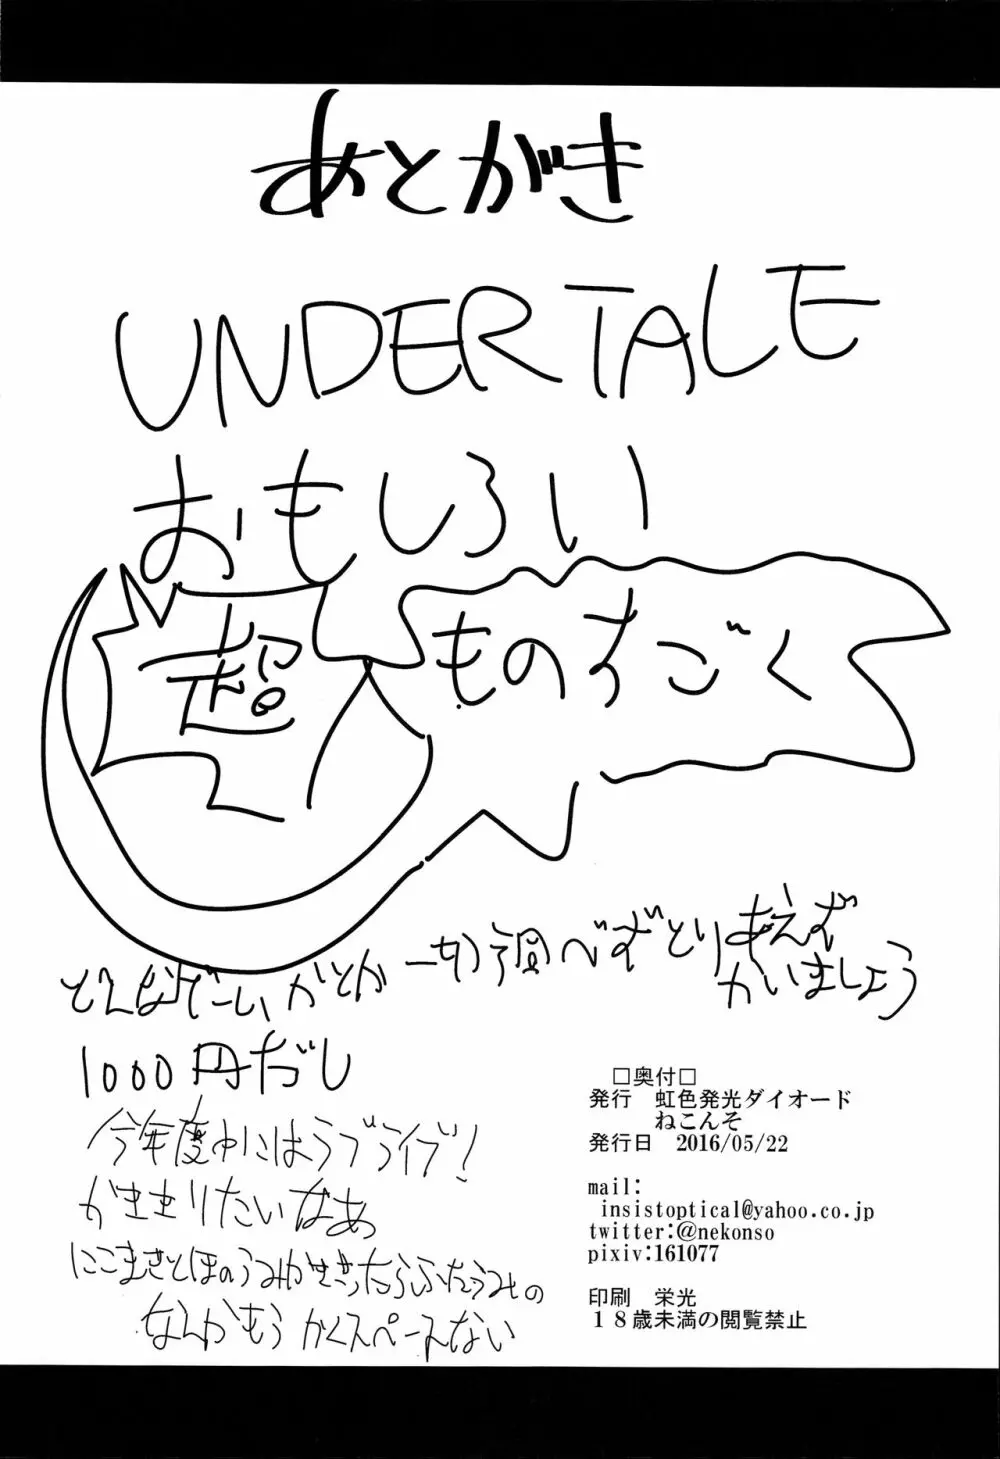 あとがき
UNDERTALE
おもしろい
超
ものすごく
どんなゲームかとか一切調べずとりあえず
かいましょう
1000円だし
今年度中にはラブライブ!
かききりたいなあ
にこまきとほのうみがかききったらふたうみの
なんかもうかくスペースない
□奥付□
発行 虹色発光ダイオード
ねこんそ
発行日 2016/05/22
mail:
insistoptical@yahoo.co.jp
twitter:@nekonso
pixiv:161077
印刷 栄光
18歳未満の閲覧禁止